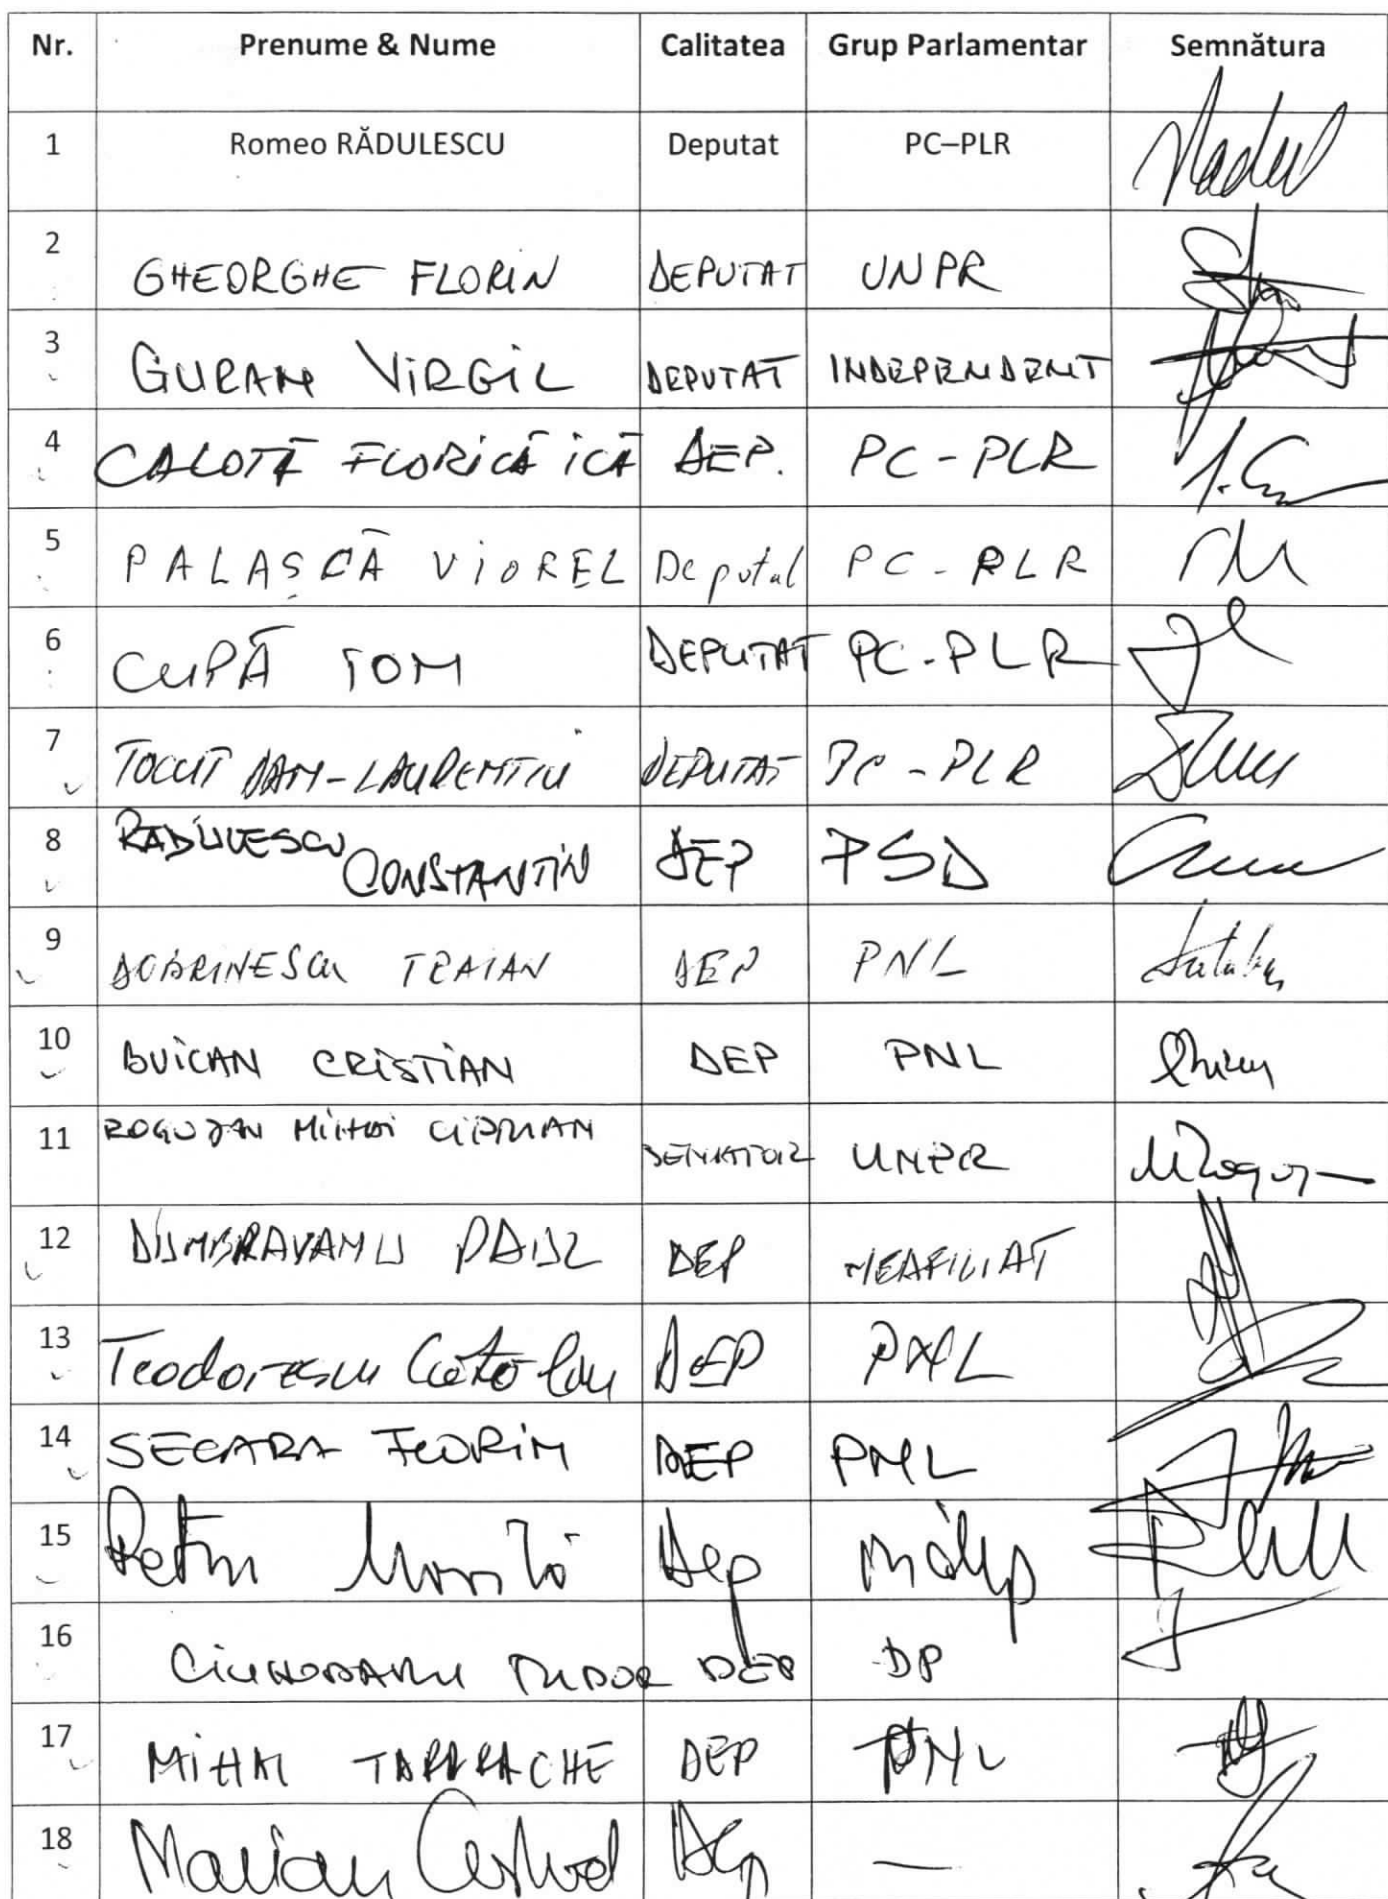 Nr. Prenume & Nume Calitatea Grup Parlamentar Semnătura
1 Romeo RĂDULESCU Deputat PC–PLR
2 GHEORGHE FLORIN DEPUTAT UNPR
3 GURAN VIRGIL DEPUTAT INDEPENDENT
4 CALOTĂ FLORICĂ ICĂ DEP. PC-PLR
5 PALAȘCĂ VIOREL Deputat PC-PLR
6 CUPĂ ION DEPUTAT PC-PLR
7 TOCUT DAN-LAURENTIU DEPUTAT PC-PLR
8 RADULESCU CONSTANTIN DEP PSD
9 DOBRINESCU TRAIAN DEP PNL
10 BUICAN CRISTIAN DEP PNL
11 ROGOJAN MIHAI CIPRIAN SENATOR UNPR
12 DUMBRAVANU PAUL DEP NEAFILIAT
13 Teodorescu Catalin DEP PNL
14 SECARA FLORIN DEP PNL
15 Petru Dep
16 CIUHODARU TUDOR DEP DP
17 MIHAI TARARACHE DEP PNL
18 Marian Dep —